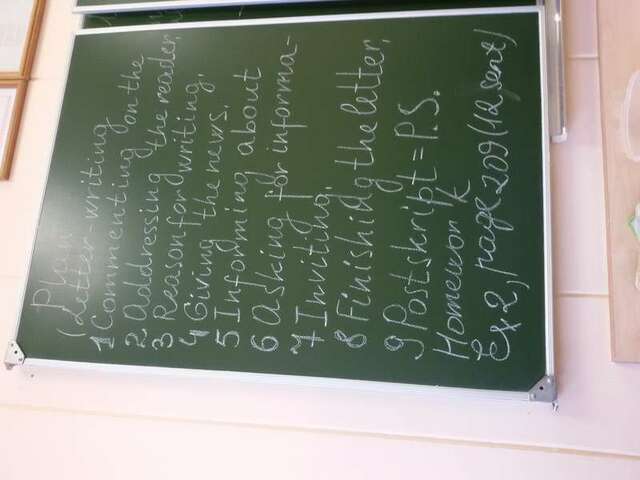 Plan
(Letter-writing
1 Commenting on the
2 Addressing the reader.
3 Reason for writing.
4 Giving the news.
5 Informing about
6 Asking for informa-
7 Inviting.
8 Finishidg the letter.
9 Postskript = P.S.
Homework
Ex 2, page 209 (12 sent)